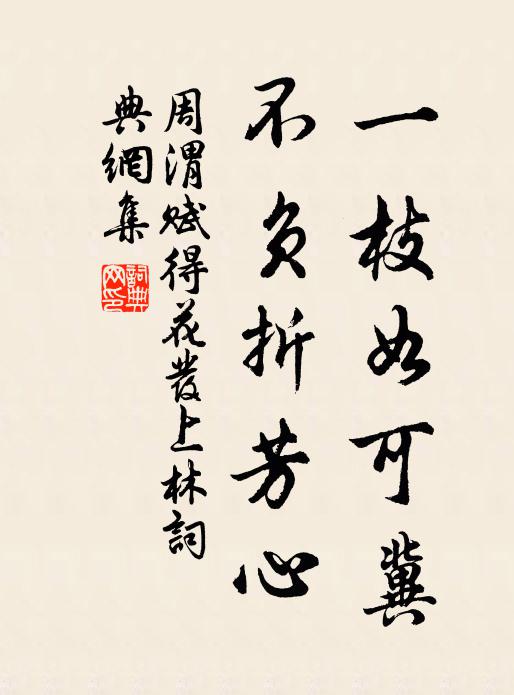 一枝如可冀
不負折芳心
周渭賦得花發上林詞
典網集
詞典網印